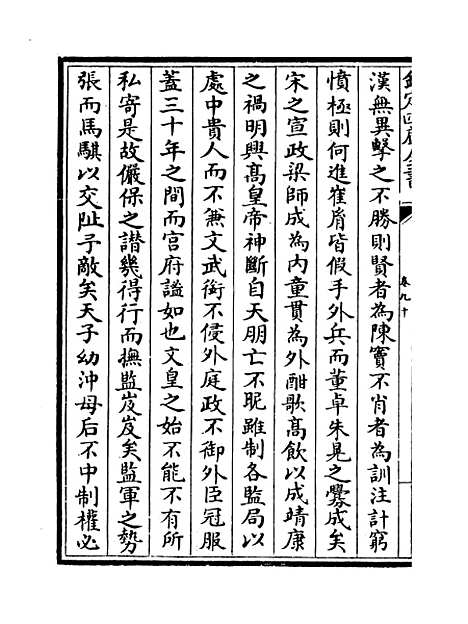 欽定四庫全書
卷九十
漢無異擊之不勝則賢者為陳竇不肖者為訓注計窮
憤極則何進崔胤皆假手外兵而董卓朱晃之釁成矣
宋之宣政梁師成為內童貫為外酣歌髙飲以成靖康
之禍明興髙皇帝神斷自天朋亡不昵雖制各監局以
處中貴人而不兼文武銜不侵外庭政不御外臣冠服
葢三十年之間而宮府謐如也文皇之始不能不有所
私寄是故儼保之譛幾得行而撫監岌岌矣監軍之勢
張而馬騏以交阯予敵矣天子幼沖母后不中制權必